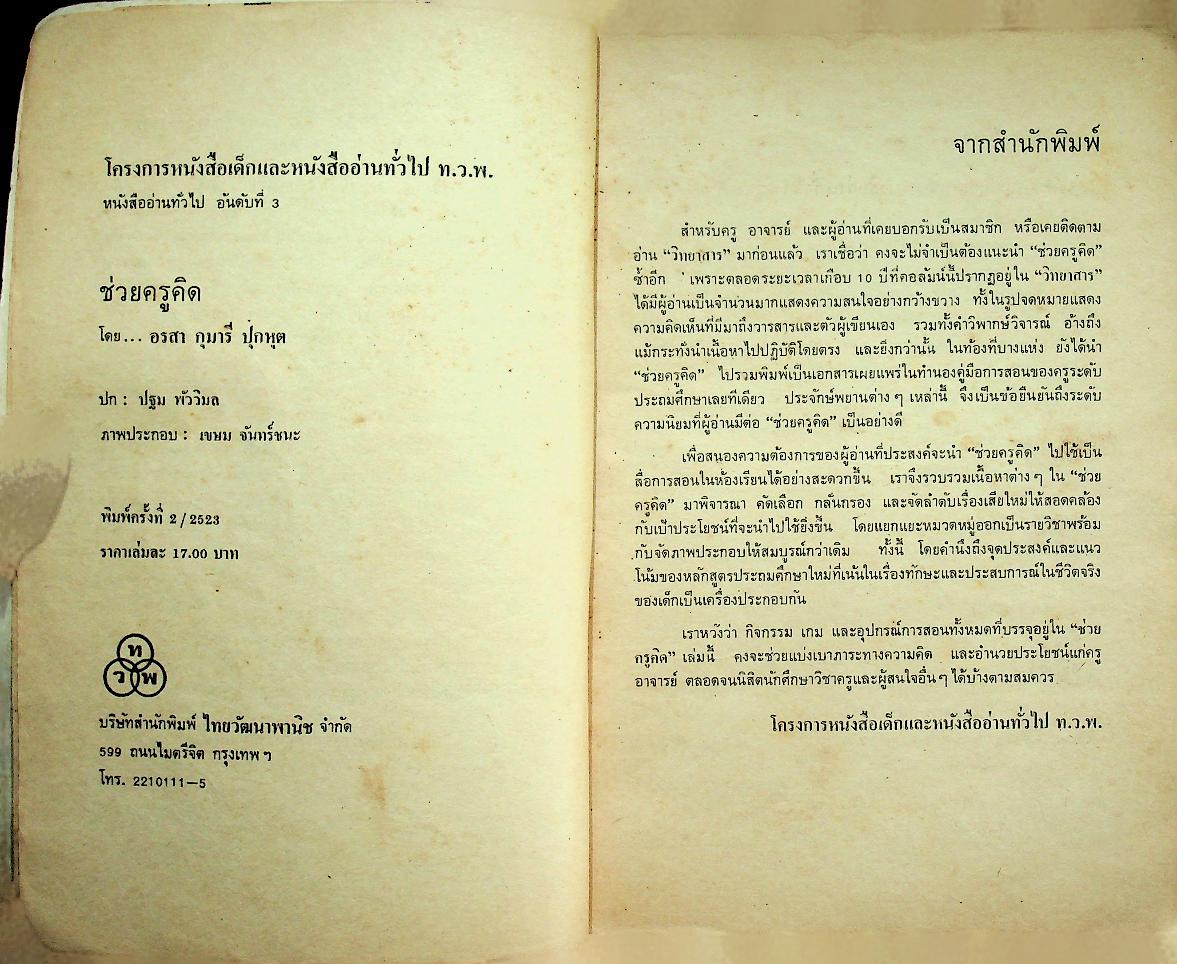 โครงการหนังสือเด็กและหนังสืออ่านทั่วไป ท.ว.พ.
หนังสืออ่านทั่วไป อันดับที่ 3
ช่วยครูคิด
โดย... อรสา กุมารี ปุกหุต
ปก : ปฐม พัววิมล
ภาพประกอบ : เขษม จันทร์ชนะ
พิมพ์ครั้งที่ 2/2523
ราคาเล่มละ 17.00 บาท
ท
ว พ
บริษัทสำนักพิมพ์ ไทยวัฒนาพานิช จำกัด
599 ถนนไมตรีจิต กรุงเทพ ฯ
โทร. 2210111—5
จากสำนักพิมพ์
สำหรับครู อาจารย์ และผู้อ่านที่เคยบอกรับเป็นสมาชิก หรือเคยติดตาม
อ่าน “วิทยาสาร” มาก่อนแล้ว เราเชื่อว่า คงจะไม่จำเป็นต้องแนะนำ “ช่วยครูคิด”
ซ้ำอีก เพราะตลอดระยะเวลาเกือบ 10 ปีที่คอลัมน์นี้ปรากฏอยู่ใน “วิทยาสาร”
ได้มีผู้อ่านเป็นจำนวนมากแสดงความสนใจอย่างกว้างขวาง ทั้งในรูปจดหมายแสดง
ความคิดเห็นที่มีมาถึงวารสารและตัวผู้เขียนเอง รวมทั้งคำวิพากษ์วิจารณ์ อ้างถึง
แม้กระทั่งนำเนื้อหาไปปฏิบัติโดยตรง และยิ่งกว่านั้น ในท้องที่บางแห่ง ยังได้นำ
“ช่วยครูคิด” ไปรวมพิมพ์เป็นเอกสารเผยแพร่ในทำนองคู่มือการสอนของครูระดับ
ประถมศึกษาเลยทีเดียว ประจักษ์พยานต่าง ๆ เหล่านี้ จึงเป็นข้อยืนยันถึงระดับ
ความนิยมที่ผู้อ่านมีต่อ “ช่วยครูคิด” เป็นอย่างดี
เพื่อสนองความต้องการของผู้อ่านที่ประสงค์จะนำ “ช่วยครูคิด” ไปใช้เป็น
สื่อการสอนในห้องเรียนได้อย่างสะดวกขึ้น เราจึงรวบรวมเนื้อหาต่าง ๆ ใน “ช่วย
ครูคิด” มาพิจารณา คัดเลือก กลั่นกรอง และจัดลำดับเรื่องเสียใหม่ให้สอดคล้อง
กับเป้าประโยชน์ที่จะนำไปใช้ยิ่งขึ้น โดยแยกแยะหมวดหมู่ออกเป็นรายวิชาพร้อม
กับจัดภาพประกอบให้สมบูรณ์กว่าเดิม ทั้งนี้ โดยคำนึงถึงจุดประสงค์และแนว
โน้มของหลักสูตรประถมศึกษาใหม่ที่เน้นในเรื่องทักษะและประสบการณ์ในชีวิตจริง
ของเด็กเป็นเครื่องประกอบกัน
เราหวังว่า กิจกรรม เกม และอุปกรณ์การสอนทั้งหมดที่บรรจุอยู่ใน “ช่วย
ครูคิด” เล่มนี้ คงจะช่วยแบ่งเบาภาระทางความคิด และอำนวยประโยชน์แก่ครู
อาจารย์ ตลอดจนนิสิตนักศึกษาวิชาครูและผู้สนใจอื่น ๆ ได้บ้างตามสมควร
โครงการหนังสือเด็กและหนังสืออ่านทั่วไป ท.ว.พ.